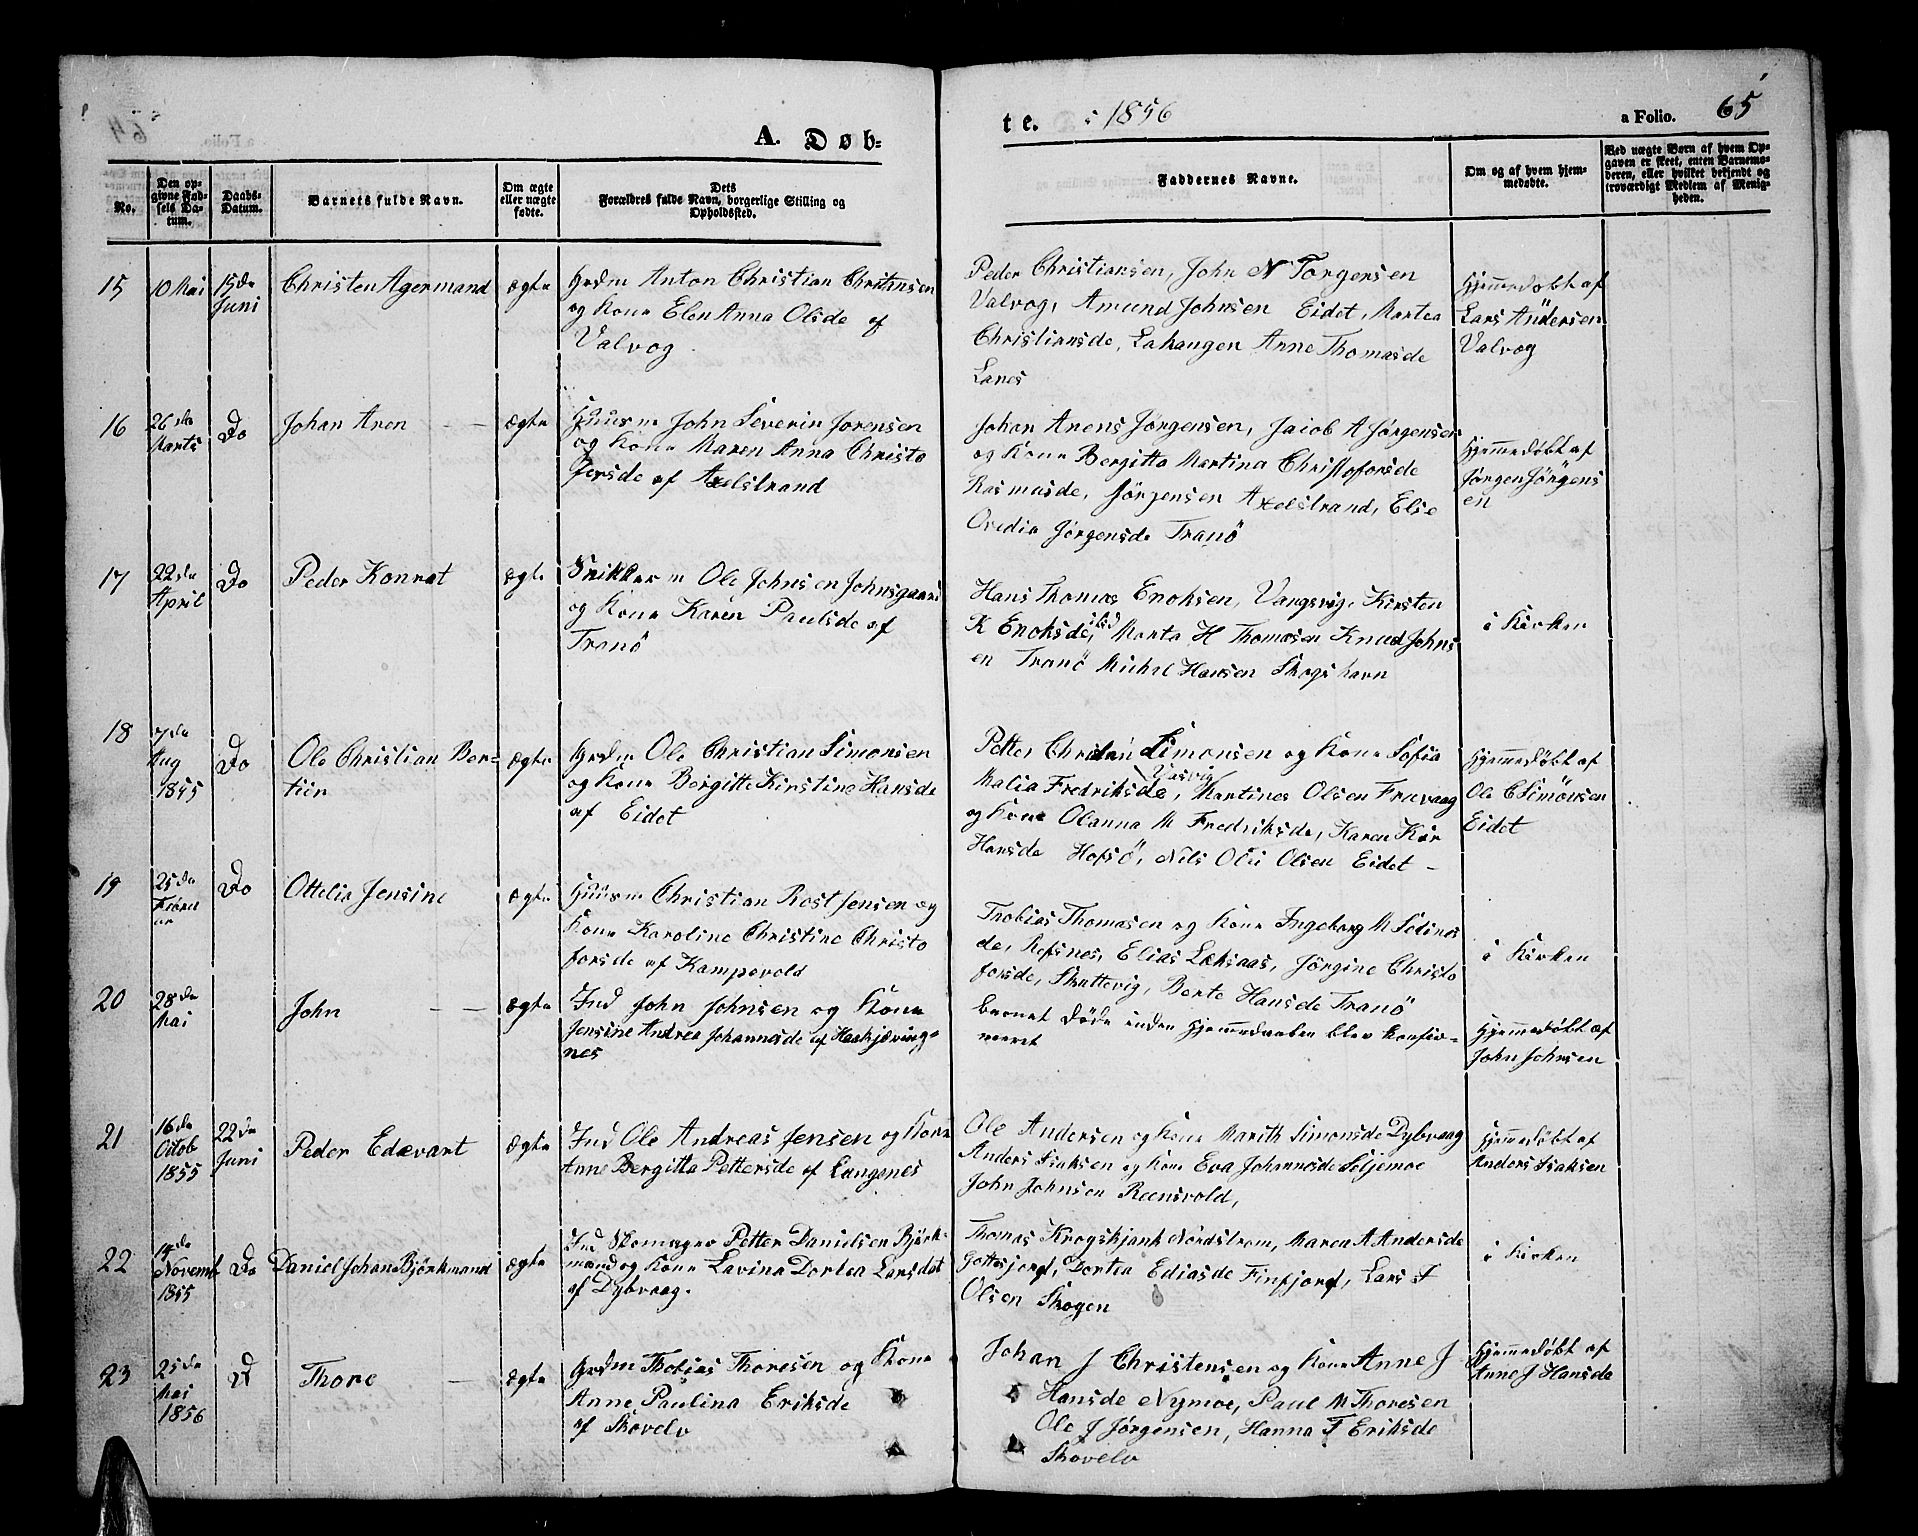 A. Døb-
te. i 1856
a Folio. 65
No.
Den op-
givne Fød-
sels Da-
tum.
Daabs-
Datum.
Barnets fulde Navn.
Om ægte
eller uægte
fødte.
Dets
Forældres fulde Navn, borgerlige Stilling og
Opholdssted.
Faddernes Navne.
Om og af hvem hjem-
medøbte.
Ved uægte Børn af hvem Op-
gaven er skeet, enten Barnemo-
deren, eller hvilket bekjendt og
troværdigt Medlem af Menig-
heden.
15
10 Mai
15de
Juni
Christen Agermand
ægte
Grdm Anton Christian Christensen
og Kone Elen Anna Olsde af
Valvog
Peder Christiansen, John N Torgersen
Valvog, Amund Johnsen Eidet, Martea
Christiansde, Lakangen Anne Thomasde
Lanes
Hjemmedøbt af
Lars Andersen
Valvog
16
26de
Marts
Do
Johan Aron
ægte
Huusm John Severin Jørensen
og Kone Maren Anna Christo
fersde af Axelstrand
Johan Arens Jørgensen, Jacob A Jørgensen
og Kone Bergitta Martina Christofersde
Rasmusde, Jörgensen Axelstrand, Elie
Ovedia Jørgensde Tranö
Hjemmedøbt af
Jørgen Jörgens
en
17
22de
April
Do
Peder Konrat
ægte
Snikker m Ole Johnsen Johnsgaard
og Kone Karen Paulsde af
Tranö
Hans Thomas Enoksen, Vangsvig, Kirsten
K Enoksde, Marta H Thomasen Knud Johns
en Tranö Mickel Hansen Skogshavn
i Kirken
18
7de
Aug
1855
Do
Ole Christian Ber-
tiir
ægte
Grdm Ole Christian Simonsen
og Kone Bergitte Kirstine Hansde
af Eidet
Petter Christian Simonsen og Kone Sofia
Malia Fredriksde, Vasvig Martines Olsen Frovaag
og Kone Olanna M Fredriksde, Karen Kir
Hansde Hofsö, Nils Olai Olsen Eidet -
Hjemmedøbt af
Ole C Simönsen
Eidet
19
25de
Do
Ottelia Jensine
ægte
Huusm Christian Rost Jensen og
Kone Karoline Christine Christo
forsde af Kampevold
Trobias Thomasen og Kone Ingeborg M Solnes
de, Refsnes, Elias Laksaas, Jørgine Christo
forsde, Skattevig, Berte Hansde Tranö
i Kirken
20
28de
Mai
John
ægte
Ind John Johnsen og Kone
Jensine Andrea Johannesde af Haskjæring-
nes
barnet döde inden hjemmedaaben blev konfir-
meret
Hjemmedøbt af
John Johnsen
21
16de
Octob
1855
22de
Juni
Peder Edevart
ægte
Ind Ole Andreas Jensen og Kone
Anne Bergitta Pettersde af Langenes
Ole Andersen og Kone Marith Simonsde Dybvaag
Anders Isaksen og Kone Eva Johannesde Seljemoe
John Johnsen Rensvold,
Hjemmedøbt af
Anders Isaksen
22
14de
Novemb
1855
Do
Daniel Johan Björkmand
ægte
Ind Skomager Petter Danielsen Björk-
mand og Kone Lavina Dortea Larsdat
af Dybvaag.
Thomas Krogskjank Nordstrom, Maren A Andersde
Gottesjord, Dortea Ediasde Finfjord, Lars F
Olsen Skogen
i Kirken
23
25de
Mai
1856
D
Thore
ægte
Grdm Thobias Thoresen og Kone
Anne Paulina Eriksde
af Skovelv
Johan J Christensen og Kone Anne J
Hansde Nymoe, Paul M Thoresen
Ole J Jörgensen, Hanna F Eriksde
Skovelv
Hjemmedøbt af
Anne J Hansde